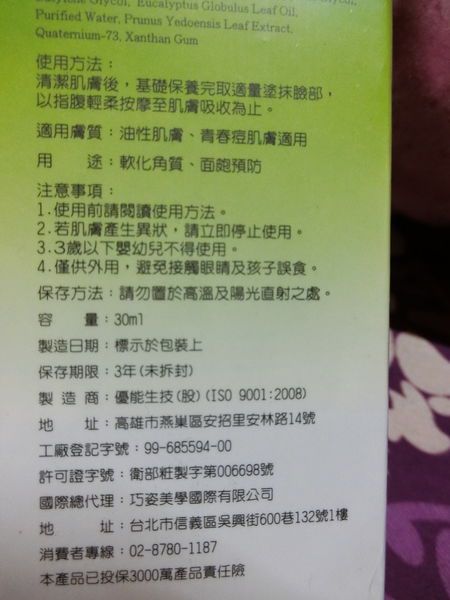 Glycol, Eucalyptus Globulus Leaf Oil,
Purified Water, Prunus Yedoensis Leaf Extract,
Quaternium-73, Xanthan Gum
使用方法：
清潔肌膚後，基礎保養完取適量塗抹臉部，
以指腹輕柔按摩至肌膚吸收為止。
適用膚質：油性肌膚、青春痘肌膚適用
用 途：軟化角質、面皰預防
注意事項：
1.使用前請閱讀使用方法。
2.若肌膚產生異狀，請立即停止使用。
3.3歲以下嬰幼兒不得使用。
4.僅供外用，避免接觸眼睛及孩子誤食。
保存方法：請勿置於高溫及陽光直射之處。
容 量：30ml
製造日期：標示於包裝上
保存期限：3年(未拆封)
製 造 商：優能生技(股)(ISO 9001:2008)
地 址：高雄市燕巢區安招里安林路14號
工廠登記字號：99-685594-00
許可證字號：衛部粧製字第006698號
國際總代理：巧姿美學國際有限公司
地 址：台北市信義區吳興街600巷132號1樓
消費者專線：02-8780-1187
本產品已投保3000萬產品責任險